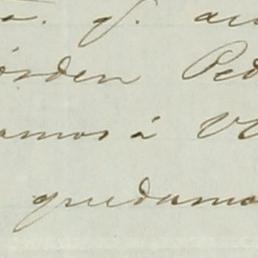 a. g. au
orden Ped
amos á V
quedamo